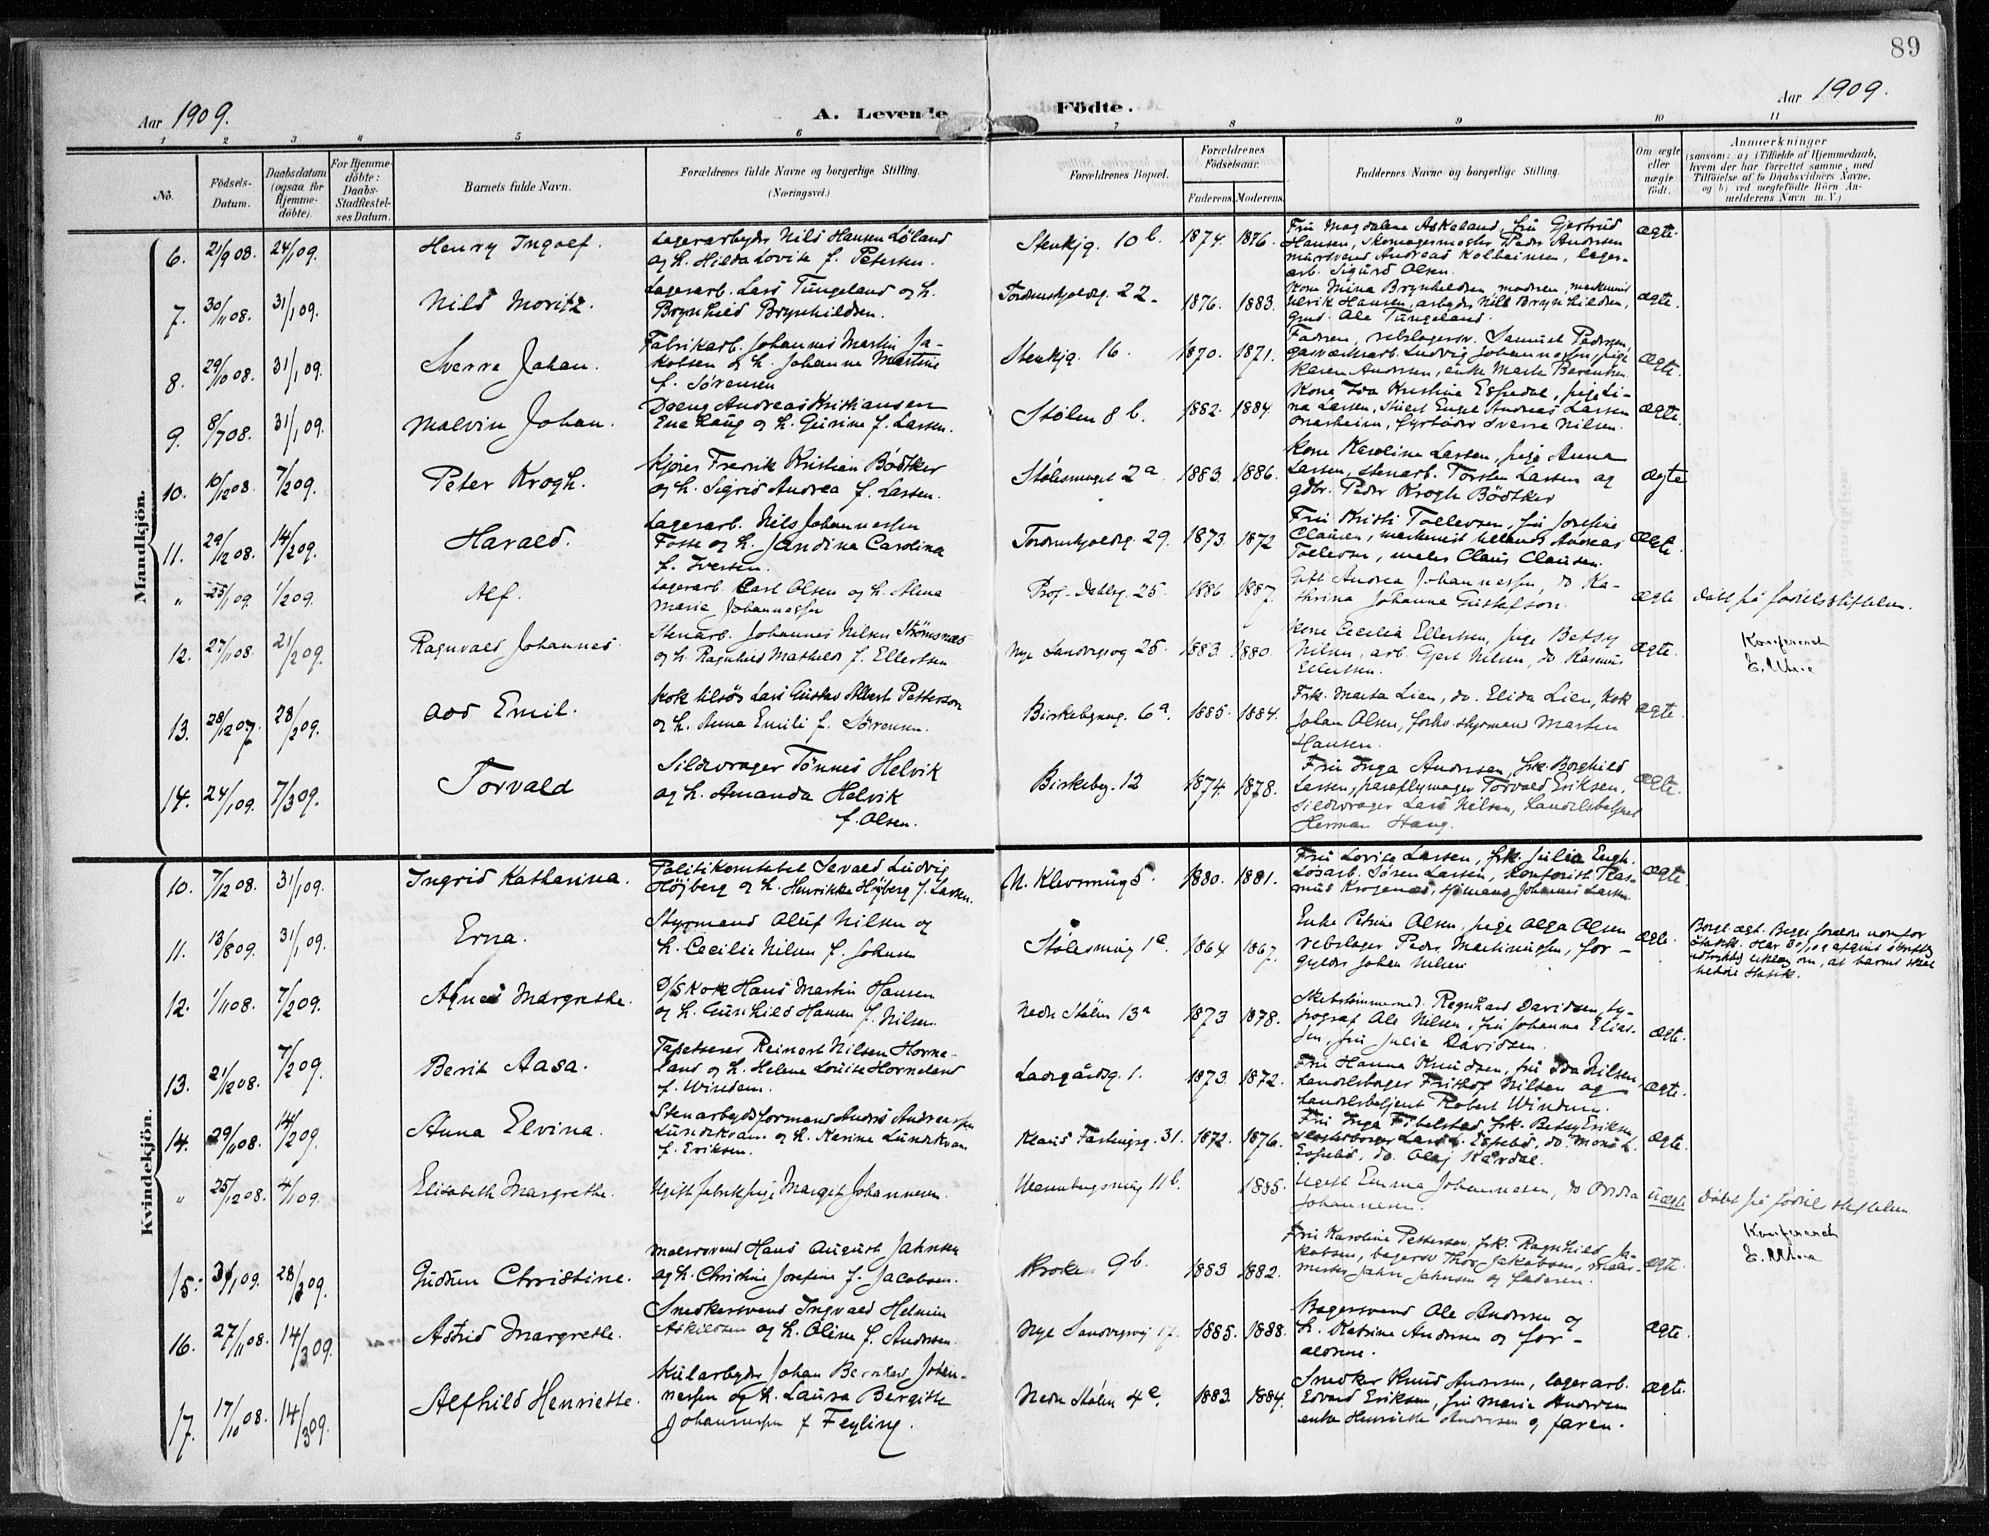 89
Aar 1909.
A. Levende Födte.
Aar 1909.
1 2 3 4 5 6 7 8 9 10 11
No.
Födsels-Datum.
Daabsdatum (ogsaa for Hjemme-döbte).
For Hjemme-döbte: Daabs-Stadfæstel-ses Datum.
Barnets fulde Navn.
Forældrenes fulde Navne og borgerlige Stilling.
(Næringsvei.)
Forældrenes Bopæl.
Forældrenes Födselsaar.
Faderens Moderens
Faddernes Navne og borgerlige Stilling.
Om ægte eller uægte födt.
Anmærkninger
(saasom: a) i Tilfælde af Hjemmedaab, hvem der har forrettet samme, med Tilföielse af to Daabsvidners Navne, og b) ved uægtefödte Börn Anmelderens Navn m.V.)
Mandkjön.
6. 21/9 08. 24/1 09. Henry Ingolf. Lagerarbeyder Nils Hansen Løland
og h. Hilda Lovise f. Petersen. Stenkjg. 10 b. 1874. 1876. Fru Magdalene Askeland, fru Gjertrud
Hansen, skomagermester Peder Andersen
mursvend Andreas Kolbeinsen, lager-
arb. Sigurd Olsen. ægte.
7. 30/11 08. 31/1 09. Nils Moritz. Lagerarb. Lars Tungeland og h.
Brynhild Brynhildsen. Tordenskjoldsg. 22. 1876. 1883. Kone Mina Brynhildsen, modren, maskinist
Ulrik Hansen, arbeyder Nils Brynhildsen,
grd. Ole Tungeland. ægte.
8. 29/10 08. 31/1 09. Sverre Johan. Fabrikarb. Johannes Martin Ja-
kobsen og h. Johanne Martine
f. Sørensen Stenkjg. 16. 1870. 1871. Fadren, rebslagersv. Samuel Pedersen,
gasværksarb. Ludvig Johannessen, pige
Karen Andersen, enke Marte Berentsen. ægte.
9. 8/7 08. 31/1 09. Malvin Johan. Dreng Andreas Kristiansen
Ene Haug og h. Gurine f. Larsen. Stølen 8 b. 1882. 1884. Kone Ida Kristine Espedal, pige Li-
na Larsen, Enget Andreas Larsen
fyrbøder Sverre Nilsen. ægte.
10. 10/12 08. 7/2 09. Peter Krogh. Kjører Fredrik Kristian Bødtker
og h. Sigrid Andrea f. Larsen. Stølesmuget 2 a 1883. 1886. Kone Karoline Larsen, pige Anna
Larsen, stenarb. Torsten Larsen og
gdbr. Peder Krogh Bödtker ægte
11. 29/12 08. 14/2 09. Harald. Lagerarb. Nils Johannessen
Fosse og h. Jandina Carolina
f. Iversen. Tordenskjoldsg. 29. 1873. 1872 Fru Kristi Tollevsen, fru Josefine
Clausen, maskinist Andreas
Tollevsen, maler Claus Clausen. ægte.
" 25/1 09. 1/2 09. Alf. Lagerarb. Carl Olsen og h. Alena
Marie Johannessen Prof. Dahlsg. 25. 1886 1887. Gift Andrea Johannessen, do Ka-
thrina Johanna Gustafson. ægte Døbt på fødselsstiftelsen.
12. 27/11 08. 21/2 09. Ragnvald Johannes. Stenarb. Johannes Nilsen Strömsnæs
og h. Ragnhild Mathilde f. Ellertsen Nye Sandvigsvg 25. 1883. 1880. Kone Cecilia Ellertsen, pige Betsy
Nilsen, arb. Gjert Nilsen, do Rasmus
Ellertsen. ægte. Konfereret
13. 28/12 07. 28/2 09. Odd Emil. Kok tilsös Lars Gustav Albert Pettersson
og h. Anna Emili f. Sörensen. Birkebgsmug. 6 a. 1885. 1884. Frk. Marta Lien, do. Elida Lien, Kok
Johan Olsen, forhv. styrmand Morten
Hansen. ægte.
14. 24/1 09. 7/3 09. Torvald Sildevrager Tönnes Helvik
og h. Amanda Helvik
f. Olsen. Birkebg. 12 1874. 1878. Fru Inga Andersen, frk Borghild
Larsen, paraplymager Torvald Eriksen,
Sildevrager Lars Nilsen, handelsbetjent
Herman Haug. ægte.
Kvindekjön.
10. 7/12 08. 31/1 09. Ingrid Katharina. Politikonstabel Sevald Ludvig
Höjberg og h. Henrikke Höjberg f. Larsen. N. Kleversmug 5. 1880. 1881. Fru Lovise Larsen, frk. Julia Engh.
Løsarb. Sören Larsen, Kontorist Ras-
mus Krogenæs, sjömand Johannes Larsen ægte.
11. 13/8 09. 31/1 09. Erna. Styrmand Oluf Nilsen og
h. Cecilie Nilsen f. Johnsen Stølesmug 1 a. 1864 1867. Enke Petrine Olsen, pige Olga Olsen
rebslager Peder Martinussen, for-
gylder Johan Nilsen ægte. Borgl. ægt. Begge foreldre uenfor
statsk. Har 30/1 09 afgivet skriftlig
udtrykkelig erklæring om, at barnet skal
tilhøre statsk.
12. 1/11 08. 7/2 09. Agnes Margrethe. D/S Kok Hans Martin Hansen
og h. Gunhild Hansen f. Nilsen. Nedre Stölen 13 a 1873 1878. Skibstömmermd. Ragnhard Davidsen, ty-
pograf Ole Nilsen, fru Johanna Elias-
sen, fru Julie Davidsen. ægte.
13. 21/12 08. 7/2 09. Berit Aasa. Tapetserer Reinert Nilsen Horne-
land og h. Helene Louise Horneland
f. Windem. Ladegårdsg. 1. 1873. 1872. Fru Hanna Knudsen, fru Ida Nilsen,
handelsborger Frithof Nilsen og
handelsbetjent Robert Windem. ægte.
14. 29/11 08. 14/2 09. Anna Elvina. Stenarbeydsformand Anders Andreassen
Lundekvam og h. Karine Lundekvam
f. Eriksen. Klaus Fastingsg. 31. 1872. 1876. Fru Inga Fibelstad, frk. Betsy Eriksen,
Lars Espelid, do. Mons L.
Espelid, do. Olaj Kårdal. ægte.
" 25/12 08. 4/1 09. Elisabeth Margrethe. Ugift fabrikpige Margit Johannesen. 11 b. 1885. Ugift Emma Johannesen, do
Johannesen. uægte Döbt på fødselsstiftelsen
15. 31/1 09. 28/2 09. Gudrun Christine. Malersvend Hans August Jahnsen
og h. Christine Josefine f. Jacobsen. Kroken 9 b. 1883 1882. Fru Karoline Pettersen, frk. Ragnhild Ja-
kobsen, bagersv Thor Jakobsen, maler-
mester John Jahnsen og faderen. ægte. Konfereret
16. 27/11 08. 14/3 09. Astrid Margrethe. Snedkersvend Ingvald Helmin
Askildsen og h. Oline f. Andersen. Nye Sandvigsvej 17. 1885. 1888. Bagersvend Ole Andersen og
h. Katrine Andersen og for-
ældrene. ægte.
17. 17/10 08. 14/3 09. Alfhild Henriette. Kularbeyder Johan Bernhard Johan-
nessen og h. Laura Bergitte
Johannessen f. Feyling. Nedre Stölen 4 e. 1883. 1884. Snedker Knud Andersen, lagerarb.
Edvard Eriksen, fru Marie Andersen
enke Henriette Andersen og faren. ægte.